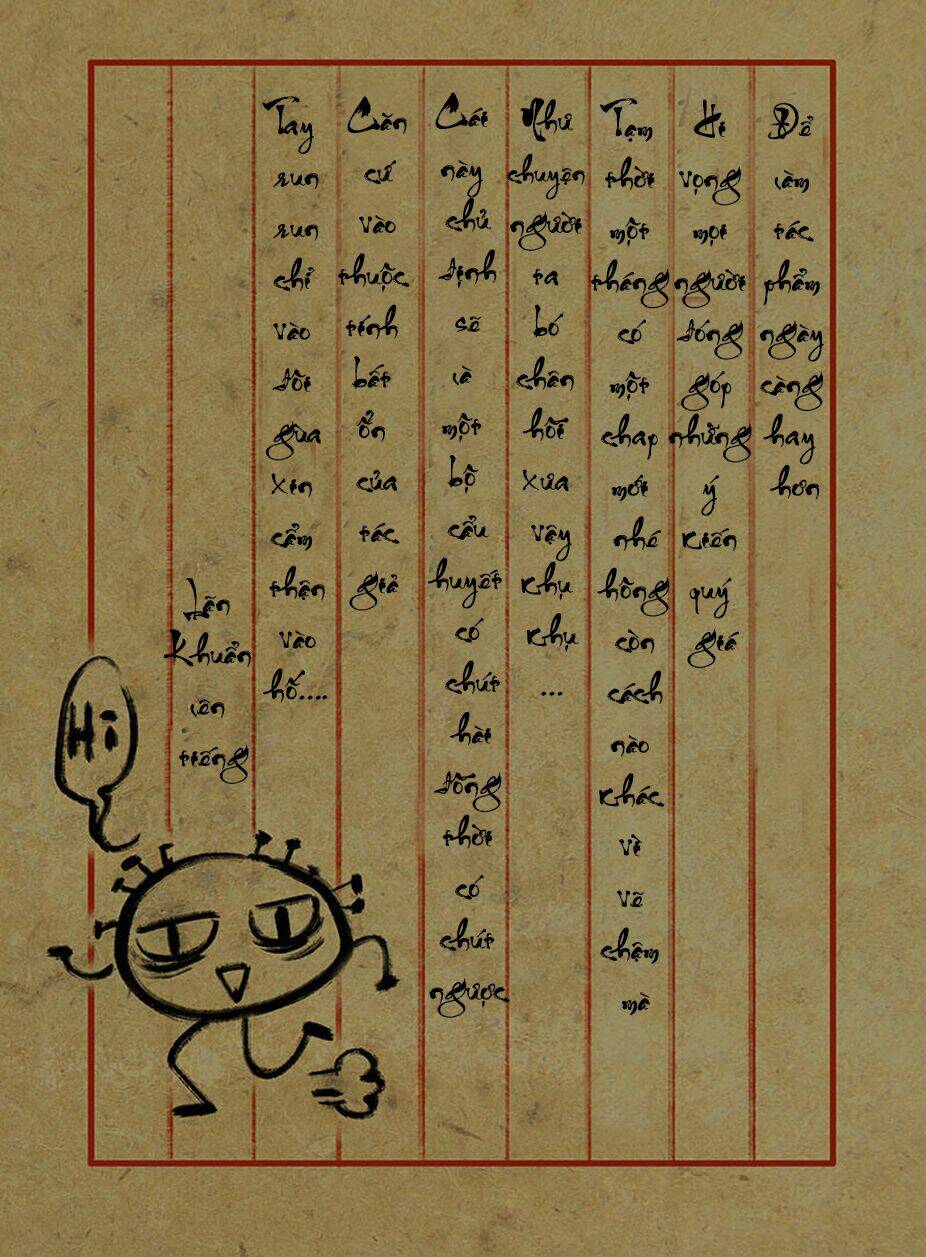 Hi
Lãn Khuẩn lên tiếng
Tay run run chỉ vào đôi gùa xin cẩm thận vào hố....
Căn cứ vào thuộc tính bất ổn của tác giả
Cái này chủ định sẽ là một bộ cẩu huyết có chút hài đồng thời có chút ngược
Như chuyện người ta bó chân hồi xưa vậy khụ khụ ...
Tạm thời một tháng có một chap mới nhé hồng còn cách nào khác vì vẽ chậm mà
Hi vọng mọi người đóng góp những ý kiến quý giá
Để làm tác phẩm ngày càng hay hơn